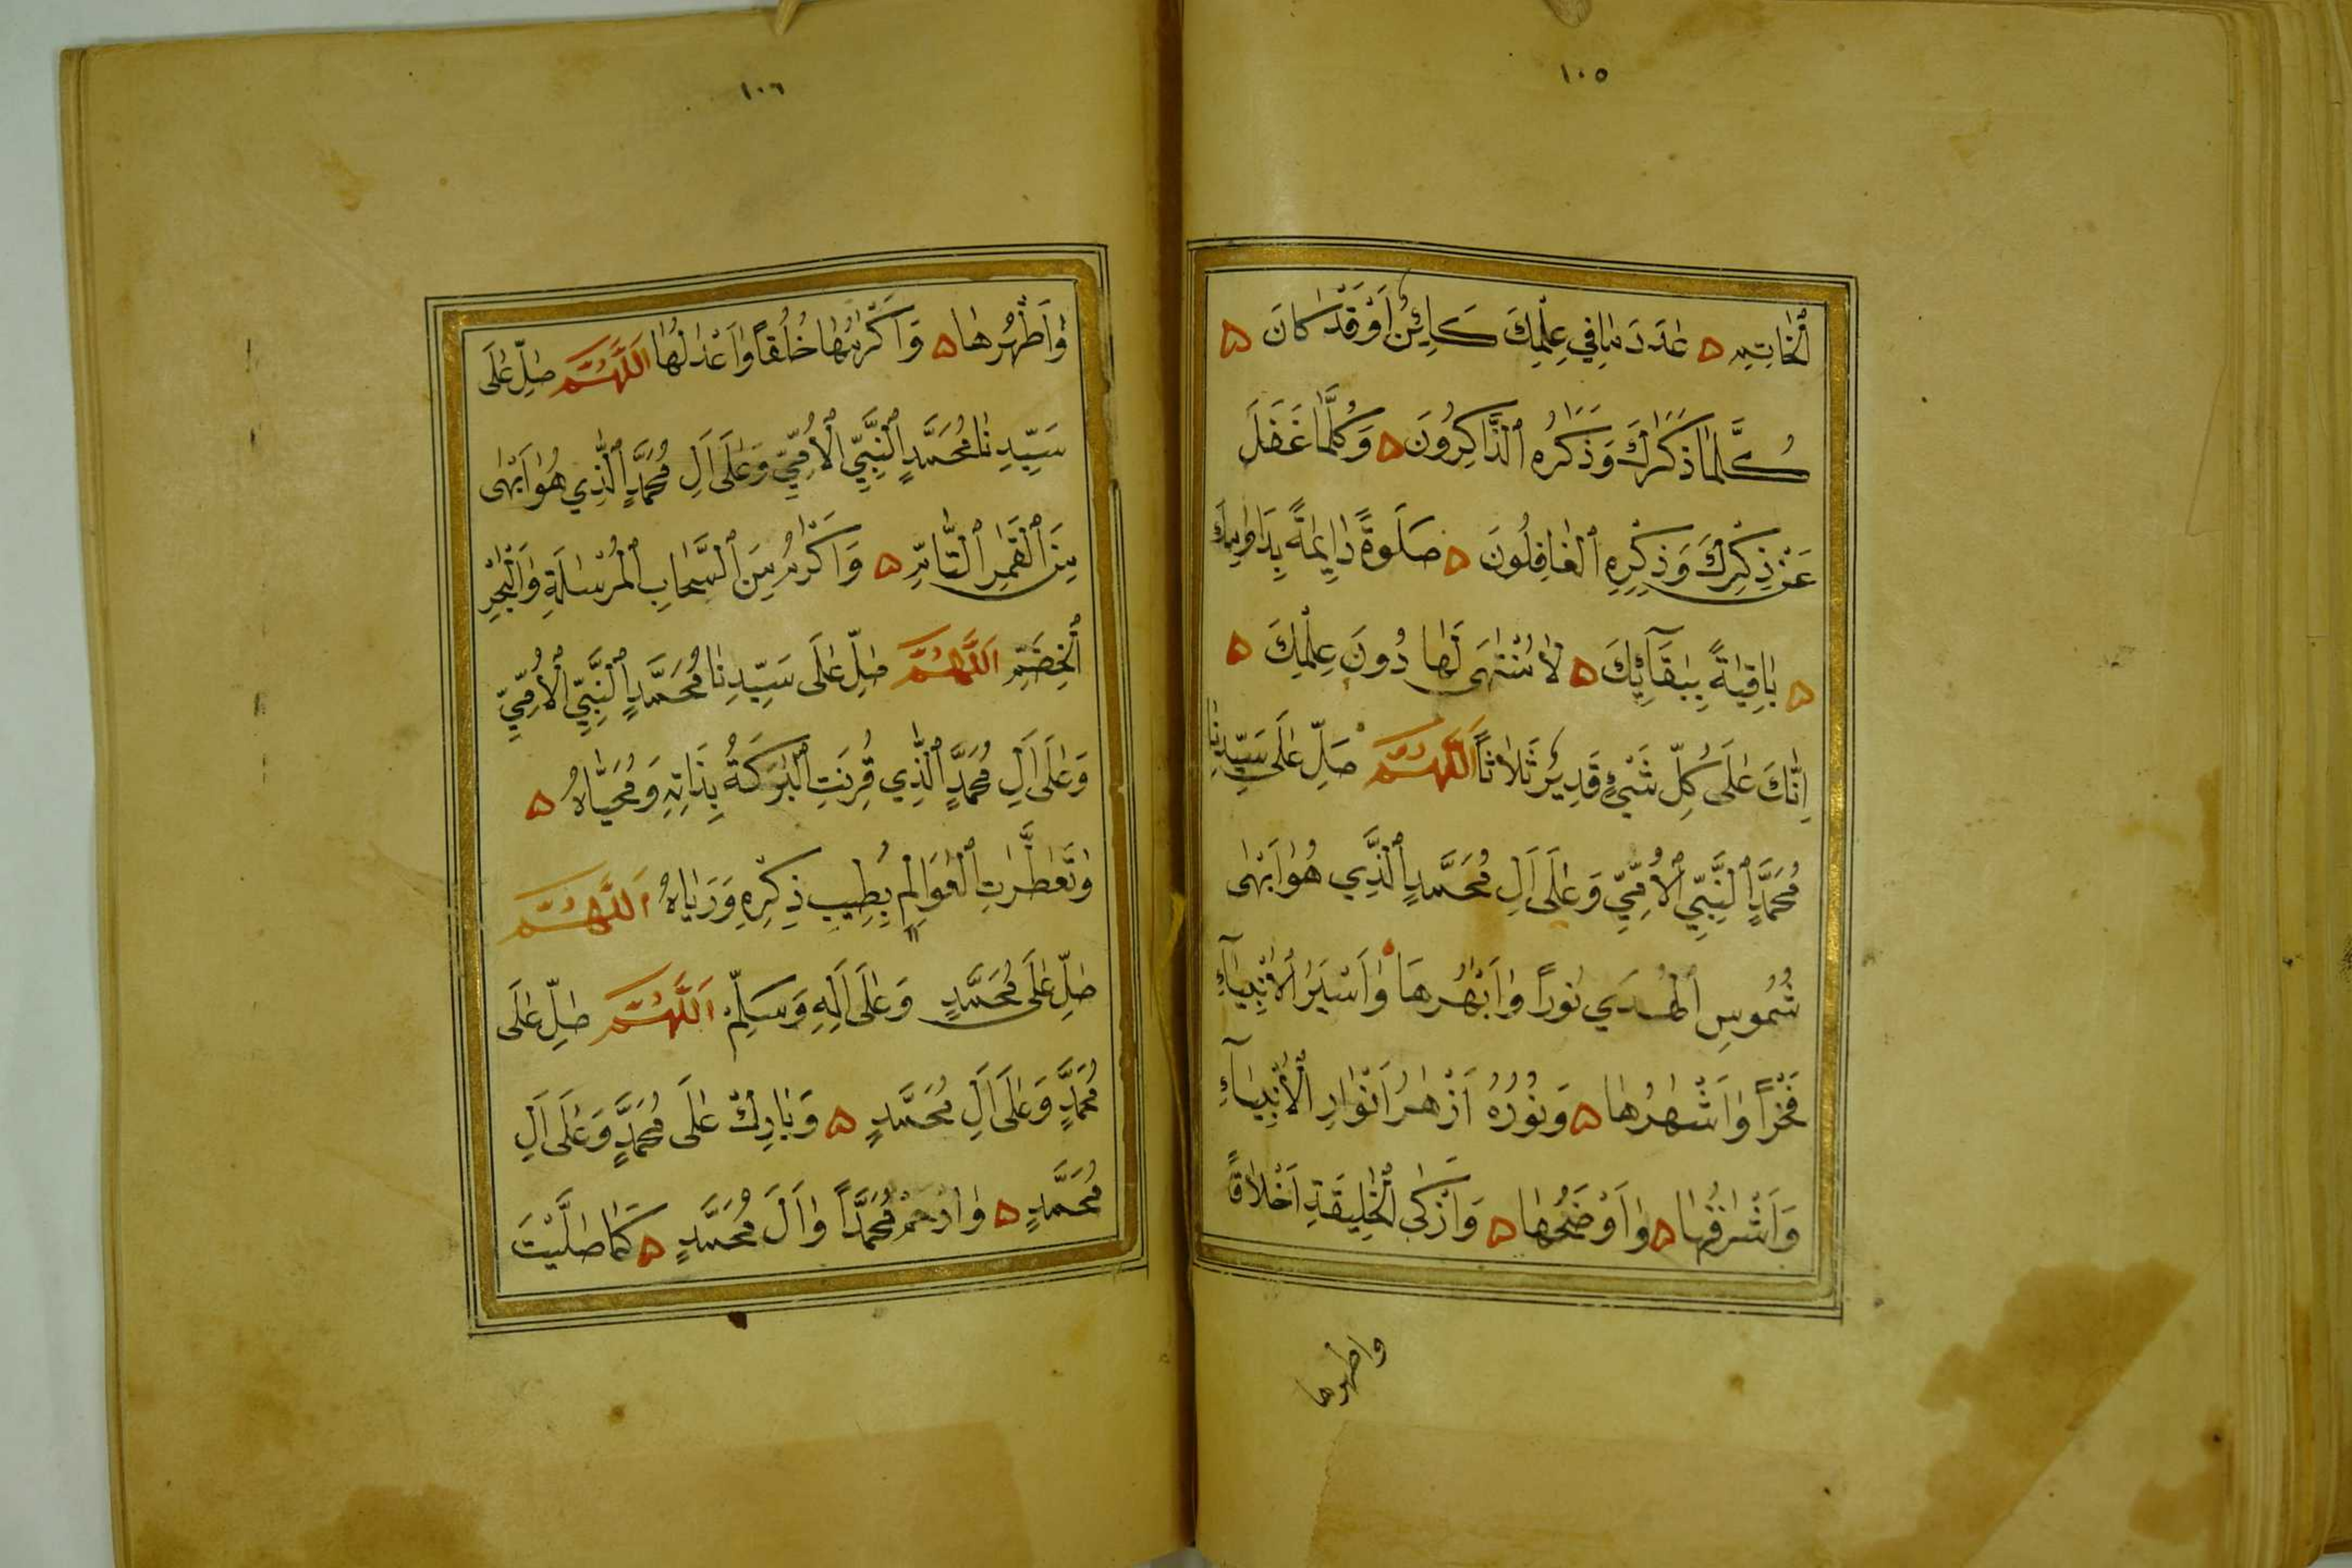 ١٠٥
الْخَاتِمِ عَدَدَ مَا فِي عِلْمِكَ كَائِنٌ أَوْ قَدْ كَانَ
كُلَّمَا ذَكَرَكَ وَذَكَرَهُ ٱلذَّاكِرُونَ وَكُلَّمَا غَفَلَ
عَنْ ذِكْرِكَ وَذِكْرِهِ ٱلْغَافِلُونَ صَلَوةً دَايِمَةً بِدَوَامِكَ
بَاقِيَةً بِبَقَآئِكَ لَا مُنْتَهَى لَهَا دُونَ عِلْمِكَ
اِنَّكَ عَلَى كُلِّ شَيْءٍ قَدِيرٌ ثَلَاثًا اَللَّهُمَّ صَلِّ عَلَى سَيِّدِنَا
مُحَمَّدٍ ٱلنَّبِيِّ ٱلْأُمِّيِّ وَعَلَى اَلِ مُحَمَّدٍ ٱلَّذِي هُوَ اَبْهَى
شُمُوسِ ٱلْهُدَي نُورًا وَاَبْهَرُهَا وَاَسْيَرُ الْاَنْبِيَآءِ
فَخْرًا وَاَشْهَرُهَا وَنُورُهُ اَزْهَرُ اَنْوَارِ ٱلْأَنْبِيَآءِ
وَاَشْرَفُهَا وَاَوْضَحُهَا وَاَزْكَى ٱلْخَلِيقَةِ اَخْلَاقًا
واطهرها
١٠٦
وَاَطْهَرُهَا وَاَكْرَمُهَا خُلُقًا وَاَعْدَلُهَا اَللَّهُمَّ صَلِّ عَلَى
سَيِّدِنَا مُحَمَّدٍ ٱلنَّبِيِّ ٱلْأُمِّيِّ وَعَلَى اَلِ مُحَمَّدٍ ٱلَّذِي هُوَ اَبْهَى
مِنَ ٱلْقَمَرِ ٱلتَّامِّ وَاَكْرَمُ مِنَ ٱلسَّحَابِ ٱلْمُرْسَلَةِ وَالْبَحْرِ
ٱلْخِضَمِّ اَللَّهُمَّ صَلِّ عَلَى سَيِّدِنَا مُحَمَّدٍ ٱلنَّبِيِّ ٱلْأُمِّيِّ
وَعَلَى اَلِ مُحَمَّدٍ ٱلَّذِي قُرِنَتِ ٱلْبَرَكَةُ بِذَاتِهِ وَمُحَيَّاهُ
وَتَعَطَّرَتِ ٱلْعَوَالِمُ بِطِيبِ ذِكْرِهِ وَرَيَّاهُ اَللَّهُمَّ
صَلِّ عَلَى مُحَمَّدٍ وَعَلَى اَلِهِ وَسَلِّمْ اَللَّهُمَّ صَلِّ عَلَى
مُحَمَّدٍ وَعَلَى اَلِ مُحَمَّدٍ وَبَارِكْ عَلَى مُحَمَّدٍ وَعَلَى اَلِ
مُحَمَّدٍ وَارْحَمْ مُحَمَّدًا وَاَلَ مُحَمَّدٍ كَمَا صَلَّيْتَ